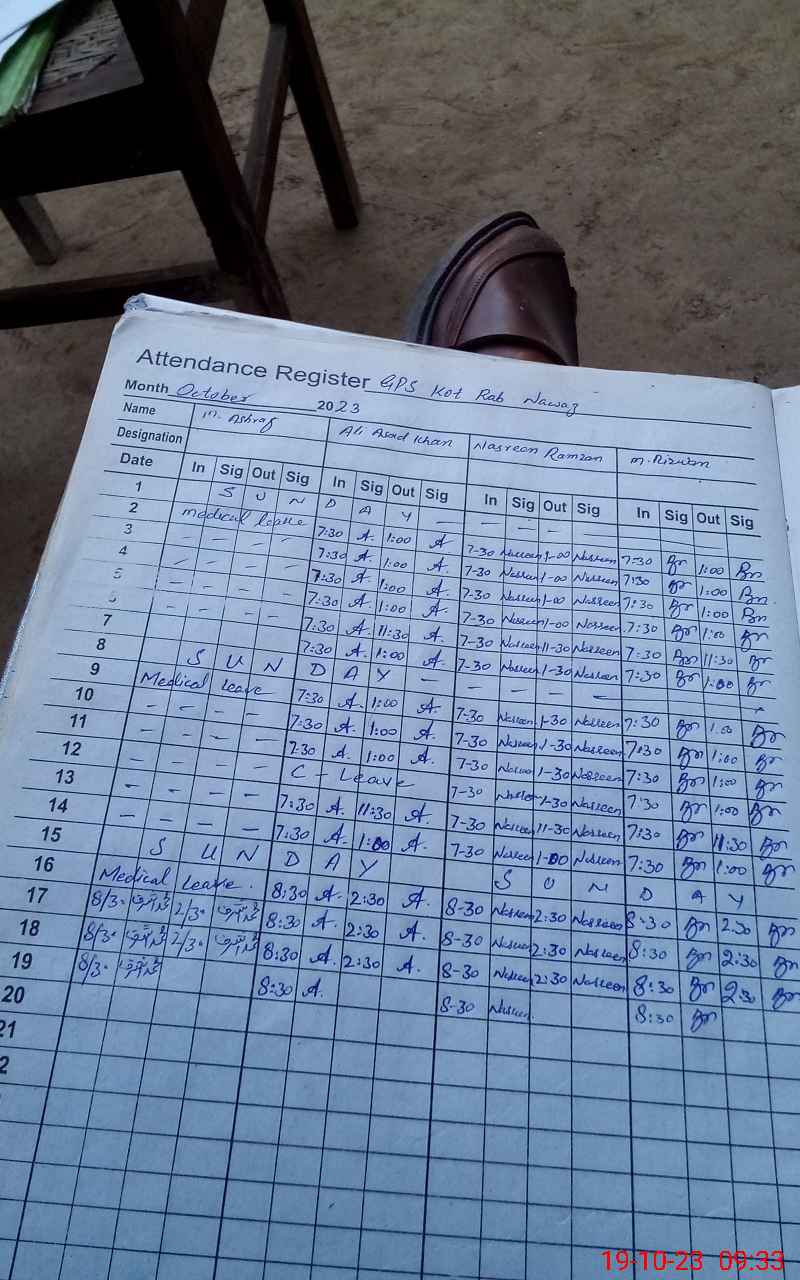 Attendance Register GPS Kot Rab Nawaz
Month October 2023
Name M. Ashraf Ali Asad Khan Nasreen Ramzan M. Rizwan
Designation
Date In Sig Out Sig In Sig Out Sig In Sig Out Sig In Sig Out Sig
1 S U N D A Y — — — — —
2 medical leave 7:30 A. 1:00 A 7-30 Nasreen 1-00 Nasreen 7:30 Br 1:00 Br
3 - - - - 7:30 A. 1:00 A. 7-30 Nasreen 1-00 Nasreen 7:30 Br 1:00 Br
4 - - - - 7:30 A. 1:00 A. 7-30 Nasreen 1-00 Nasreen 7:30 Br 1:00 Br
5 - - - - 7:30 A. 1:00 A. 7-30 Nasreen 1-00 Nasreen 7:30 Br 1:00 Br
6 - - - - 7:30 A. 11:30 A. 7-30 Nasreen 11-30 Nasreen 7:30 Br 11:30 Br
7 - - - - 7:30 A. 1:00 A. 7-30 Nasreen 1-30 Nasreen 7:30 Br 1:00 Br
8 S U N D A Y — — — — —
9 Medical leave 7:30 A. 1:00 A. 7-30 Nasreen 1-30 Nasreen 7:30 Br 1:00 Br
10 - - - - 7:30 A. 1:00 A. 7-30 Nasreen 1-30 Nasreen 7:30 Br 1:00 Br
11 - - - - 7:30 A. 1:00 A. 7-30 Nasreen 1-30 Nasreen 7:30 Br 1:00 Br
12 - - - - C - Leave 7-30 Nasreen 1-30 Nasreen 7:30 Br 1:00 Br
13 - - - - 7:30 A. 11:30 A. 7-30 Nasreen 11-30 Nasreen 7:30 Br 11:30 Br
14 - - - - 7:30 A. 1:00 A. 7-30 Nasreen 1-00 Nasreen 7:30 Br 1:00 Br
15 S U N D A Y S U N D A Y
16 Medical Leave. 8:30 A. 2:30 A. 8-30 Nasreen 2:30 Nasreen 8:30 Br 2:30 Br
17 8/30 محمد اشرف 2/30 محمد اشرف 8:30 A. 2:30 A. 8-30 Nasreen 2:30 Nasreen 8:30 Br 2:30 Br
18 8/30 محمد اشرف 2/30 محمد اشرف 8:30 A. 2:30 A. 8-30 Nasreen 2:30 Nasreen 8:30 Br 2:30 Br
19 8/30 محمد اشرف 8:30 A. 8-30 Nasreen 8:30 Br
20
21
19-10-23 09:33